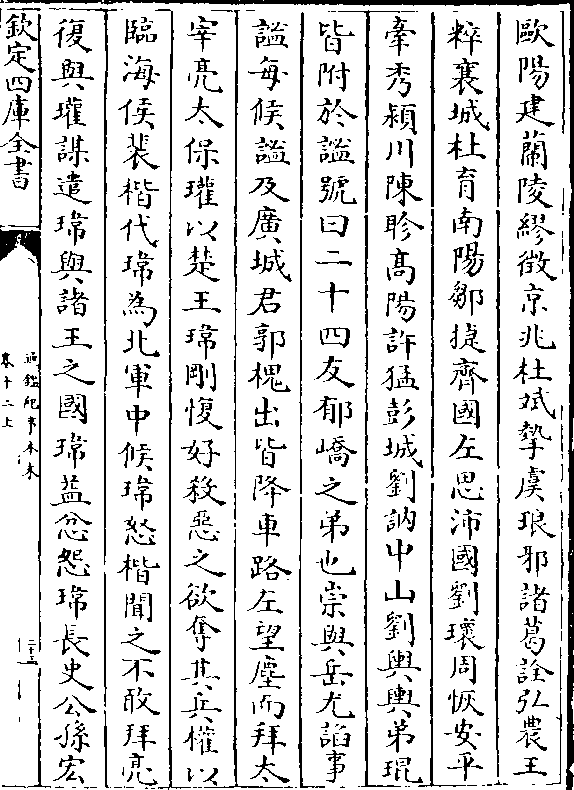 歐陽建蘭陵繆徵京兆杜斌摯虞琅邪諸葛詮弘農王
粹襄城杜育南陽鄒捷齊國左思沛國劉瓌周恢安平
牽秀潁川陳眕高陽許猛彭城劉訥中山劉輿輿弟琨
皆附於謐號曰二十四友郁嶠之弟也崇與岳尤諂事
謐每候謐及廣城君郭槐出皆降車路左望塵而拜太
宰亮太保瓘以楚王瑋剛愎好殺惡之欲奪其兵權以
臨海侯裴楷代瑋為北軍中候瑋怒楷聞之不敢拜亮
復與瓘謀遣瑋與諸王之國瑋益忿怨瑋長史公孫宏
欽定四庫全書
通鑑紀事本末
卷十二上